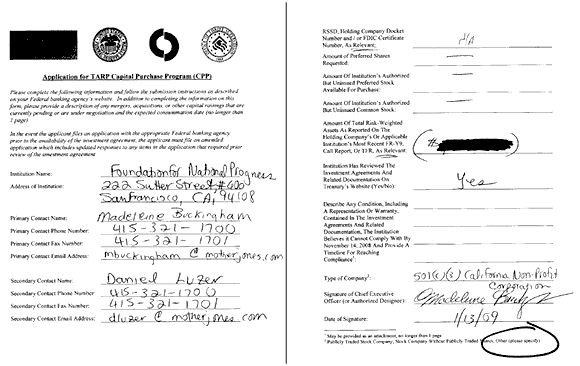 Application for TARP Capital Purchase Program (CPP)
Please complete the following information and follow the submission instructions as described
on your Federal banking agency's website. In addition to completing the information on this
form, please provide a description of any mergers, acquisitions, or other capital savings that are
currently pending or are under negotiation and the expected consummation date (no longer than
1 page).
In the event the applicant files an application with the appropriate Federal banking agency
prior to the availability of the investment agreement, the applicant must file an amended
application which includes updated responses to any items in the application that required prior
review of the investment agreement
Institution Name: Foundation for National Progress
Address of Institution: 222 Sutter Street, #600
San Francisco, CA, 94108
Primary Contact Name: Madeleine Buckingham
Primary Contact Phone Number: 415-321-1700
Primary Contact Fax Number: 415-321-1701
Primary Contact Email Address: mbuckingham@motherjones.com
Secondary Contact Name: Daniel Luzer
Secondary Contact Phone Number: 415-321-1700
Secondary Contact Fax Number: 415-321-1701
Secondary Contact Email Address: dluzer@motherjones.com
RSSD, Holding Company Docket
Number and / or FDIC Certificate
Number, As Relevant: N/A
Amount of Preferred Shares
Requested:
Amount Of Institution's Authorized
But Unissued Preferred Stock
Available For Purchase:
Amount Of Institution's Authorized
But Unissued Common Stock:
Amount Of Total Risk-Weighted
Assets As Reported On The
Holding Company's Or Applicable
Institution's Most Recent FR-Y9,
Call Report, Or TFR, As Relevant:
Institution Has Reviewed The
Investment Agreements And
Related Documentation On
Treasury's Website (Yes/No): Yes
Describe Any Condition, Including
A Representation Or Warranty,
Contained In The Investment
Agreements And Related
Documentation, The Institution
Believes It Cannot Comply With By
November 14, 2008 And Provide A
Timeline For Reaching
Compliance¹:
Type of Company²: 501(c)(3) California Non-Profit
Corporation
Signature of Chief Executive
Officer (or Authorized Designee):
Date of Signature: 1/13/09
¹ May be provided as an attachment, no longer than 1 page
² Publicly Traded Stock Company, Stock Company Without Publicly Traded Shares, Other (please specify)